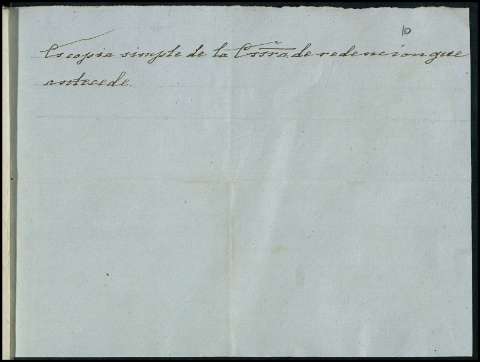 10
Es copia simple de la Essrã de redencion que
antecede.